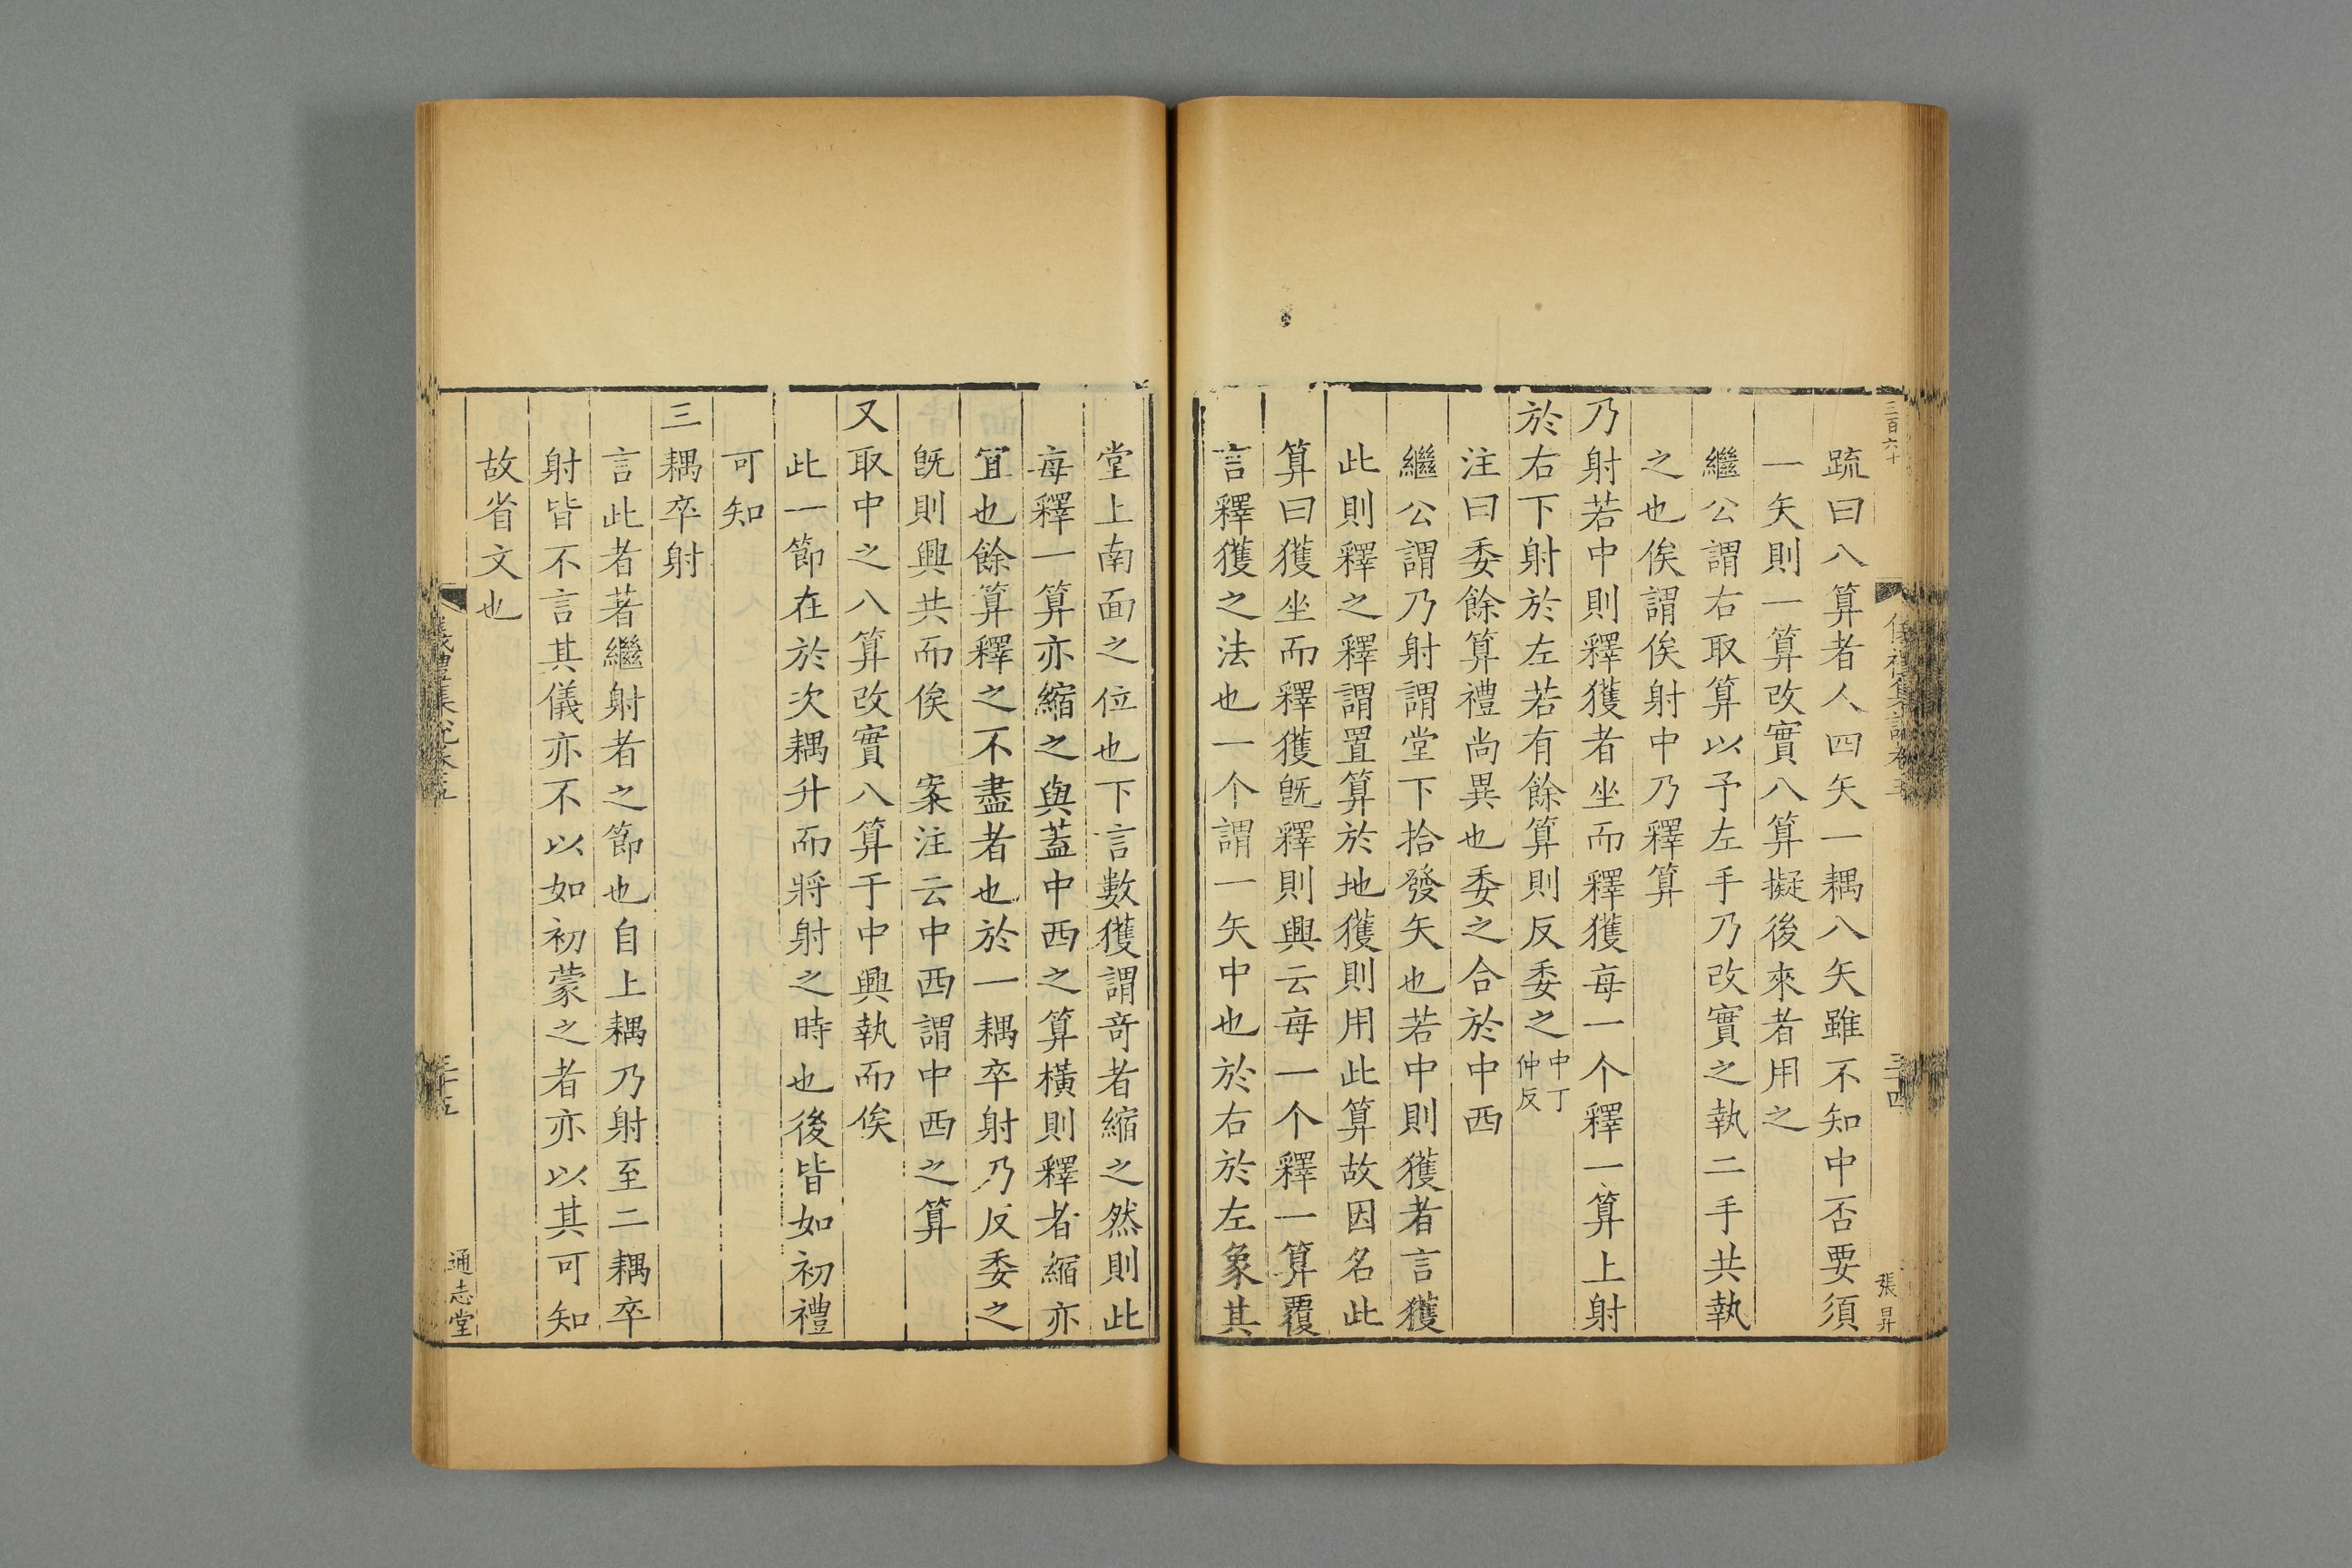 三百六十
疏曰八算者人四矢一耦八矢雖不知中否要須
一矢則一算改實八算擬後來者用之
繼公謂右取算以予左手乃改實之執二手共執
之也俟謂俟射中乃釋算
乃射若中則釋獲者坐而釋獲每一个釋一算上射
於右下射於左若有餘算則反委之中丁仲反
注曰委餘算禮尚異也委之合於中西
繼公謂乃射謂堂下拾發矢也若中則獲者言獲
此則釋之釋謂置算於地獲則用此算故因名此
算曰獲坐而釋獲旣釋則興云每一个釋一算覆
言釋獲之法也一个謂一矢中也於右於左象其
張昇
堂上南面之位也下言數獲謂竒者縮之然則此
每釋一算亦縮之與蓋中西之算橫則釋者縮亦
宜也餘算釋之不盡者也於一耦卒射乃反委之
旣則興共而俟　案注云中西謂中西之算
又取中之八算改實八算于中興執而俟
此一節在於次耦升而將射之時也後皆如初禮
可知
三耦卒射
言此者著繼射者之節也自上耦乃射至二耦卒
射皆不言其儀亦不以如初蒙之者亦以其可知
故省文也
通志堂